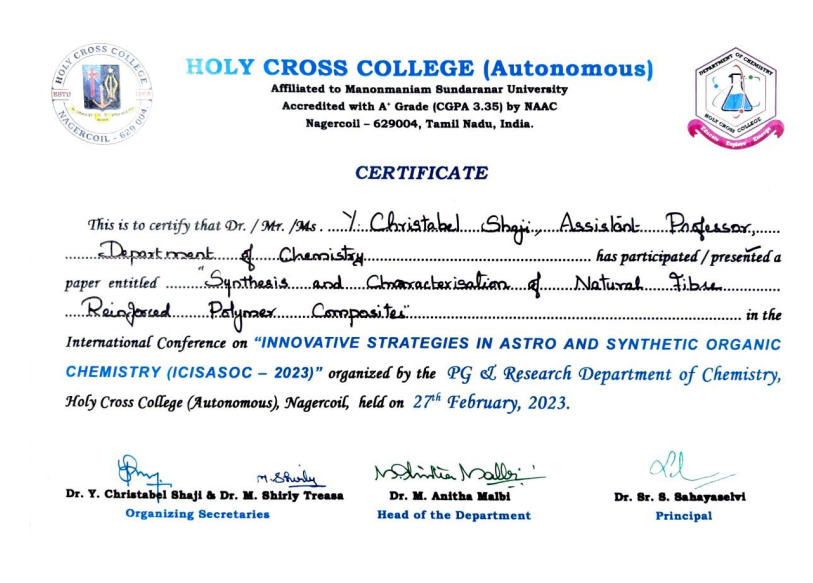 HOLY CROSS COLLEGE
ESTD 1965
NAGERCOIL - 629 004
HOLY CROSS COLLEGE (Autonomous)
Affiliated to Manonmaniam Sundaranar University
Accredited with A+ Grade (CGPA 3.35) by NAAC
Nagercoil – 629004, Tamil Nadu, India.
DEPARTMENT OF CHEMISTRY
HOLY CROSS COLLEGE
Educate Explore Emerge
CERTIFICATE
This is to certify that Dr. / Mr. /Ms . Y. Christabel Shaji, Assistant Professor,
Department of Chemistry has participated / presented a
paper entitled "Synthesis and Characterisation of Natural Fibre
Reinforced Polymer Composites" in the
International Conference on "INNOVATIVE STRATEGIES IN ASTRO AND SYNTHETIC ORGANIC
CHEMISTRY (ICISASOC – 2023)" organized by the PG & Research Department of Chemistry,
Holy Cross College (Autonomous), Nagercoil, held on 27th February, 2023.
M. Shirly
Dr. Y. Christabel Shaji & Dr. M. Shirly Treasa
Organizing Secretaries
Dr. M. Anitha Malbi
Head of the Department
Dr. Sr. S. Sahayaselvi
Principal